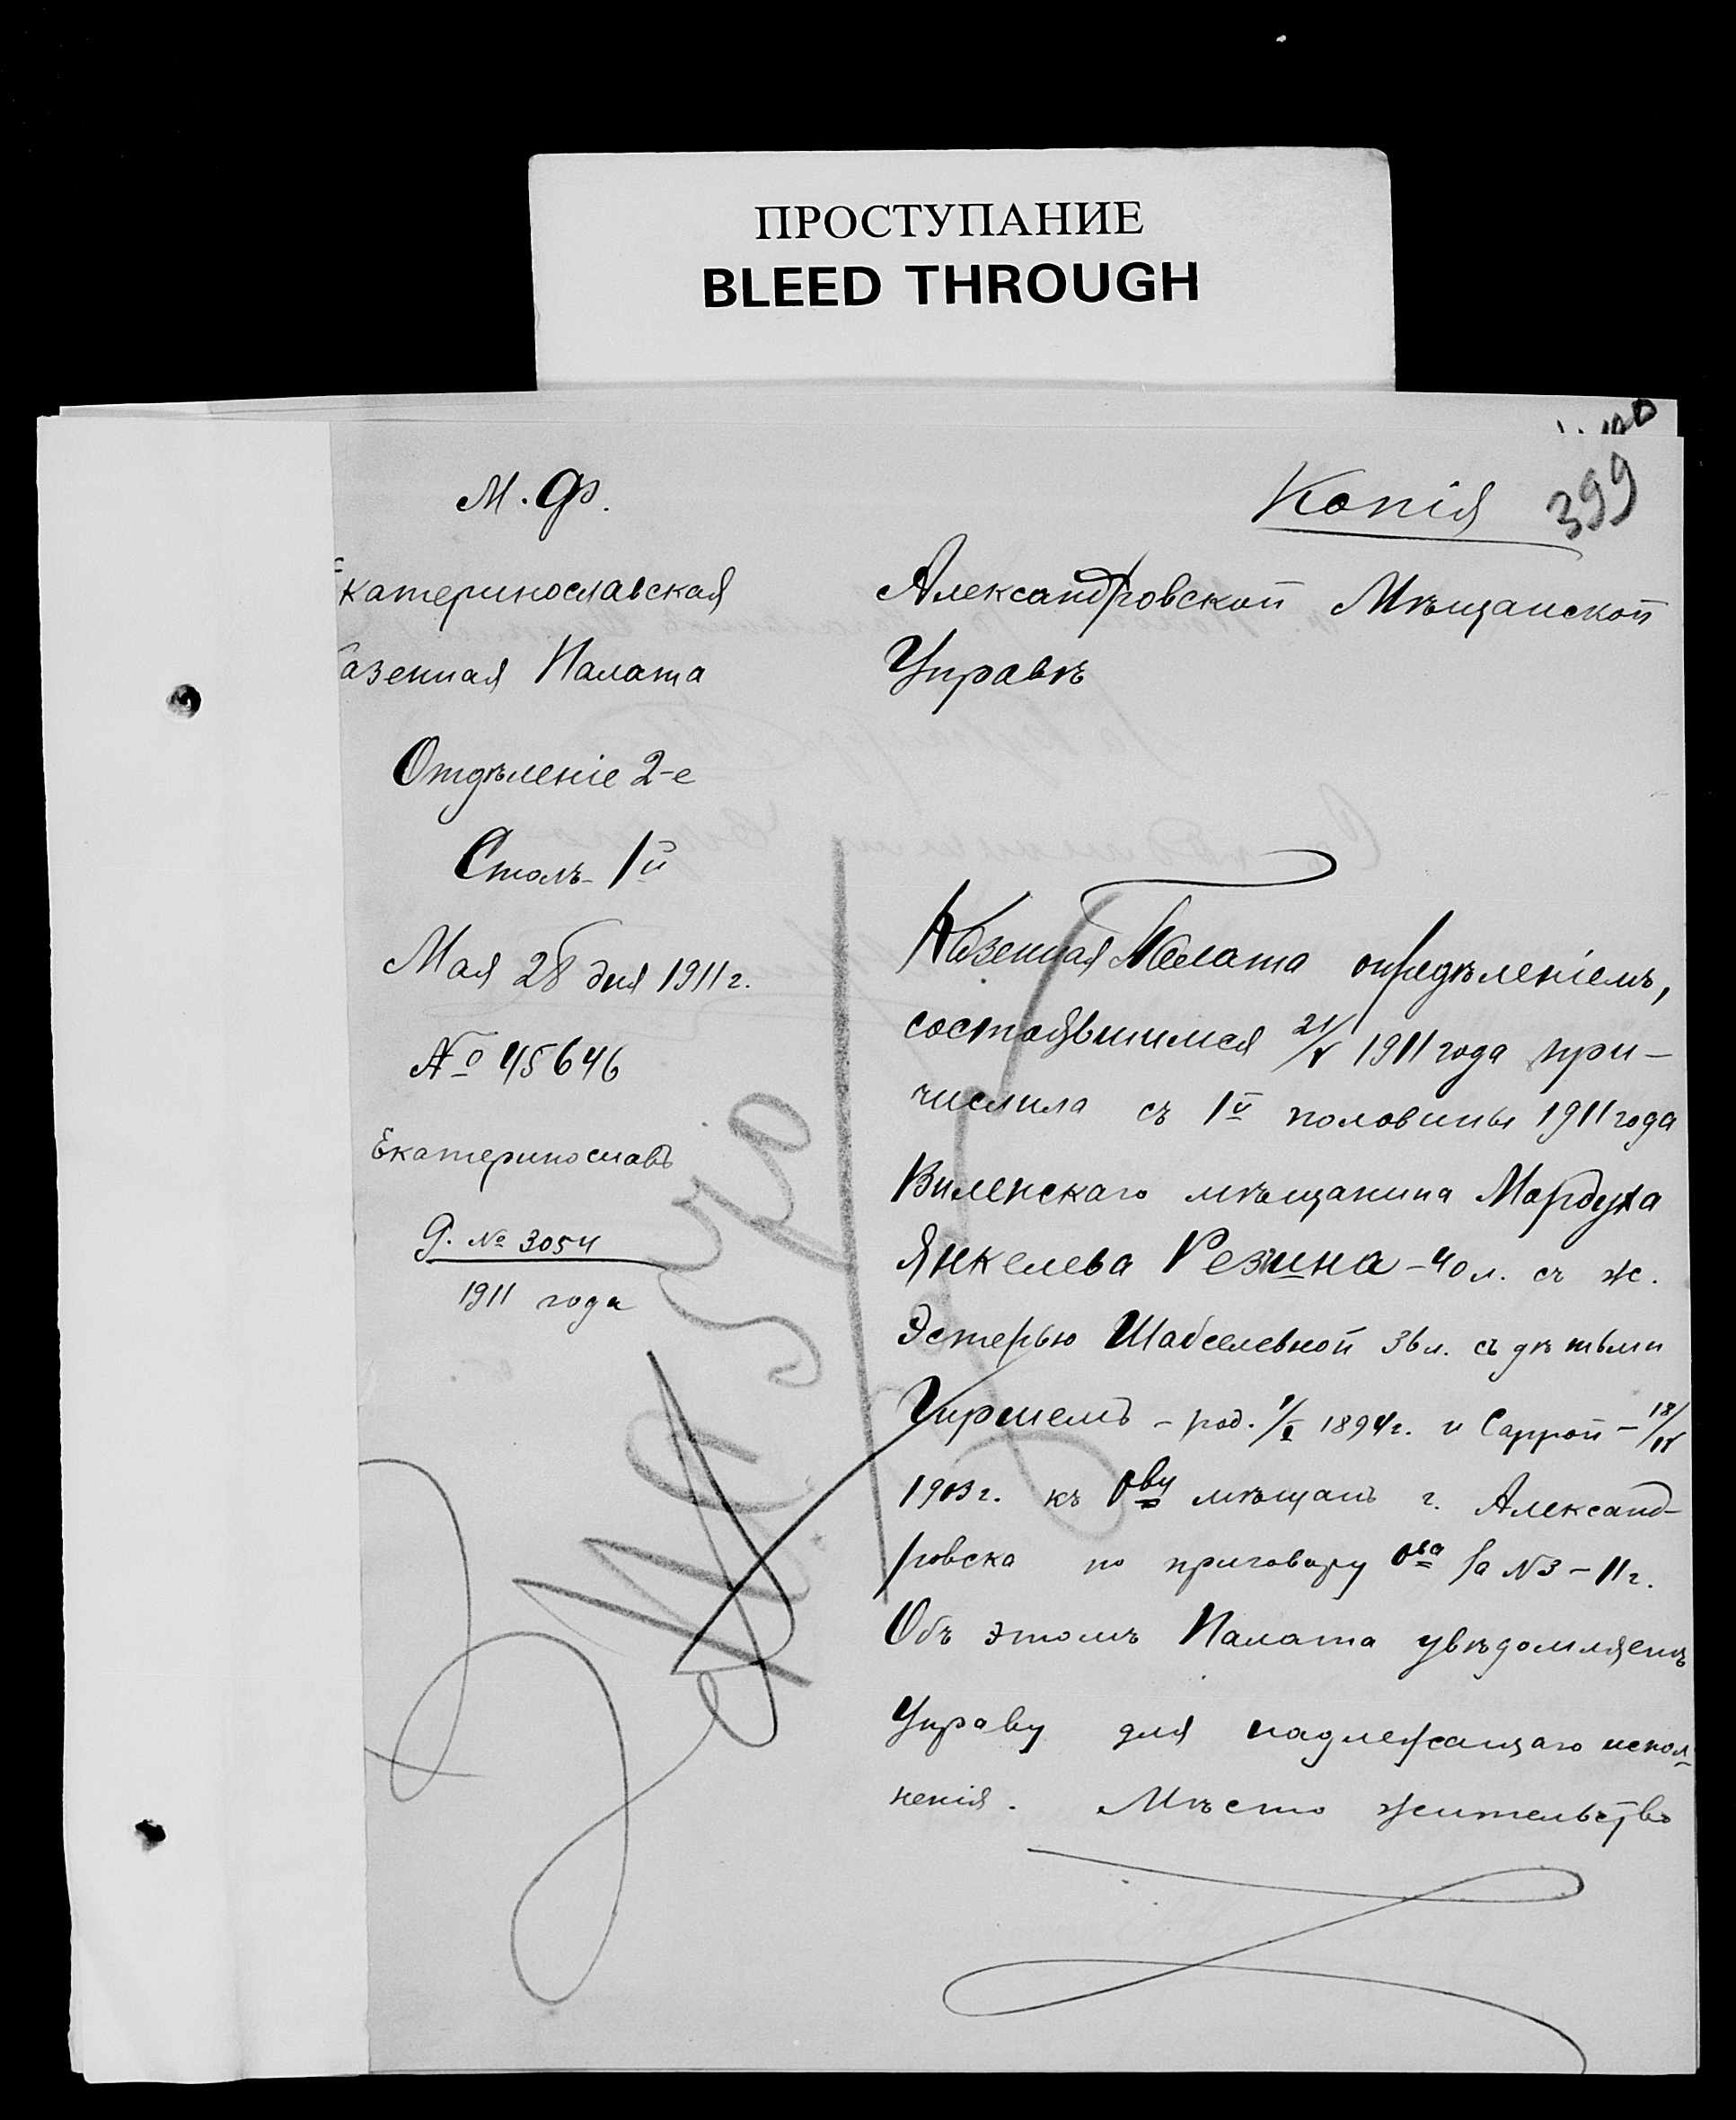 ПРОСТУПАНИЕ
BLEED THROUGH
399
М. Ф.
Екатеринославская
Казенная Палата
Отдѣленіе 2-е
Столъ 1й
Мая 28 дня 1911 г.
№ 45646
Екатеринославъ
Д. № 3054
1911 года
Копія
Александровской Мѣщанской
Управѣ
Казенная Палата опредѣленіемъ,
состоявшимся 21/V 1911 года при-
числила съ 1й половины 1911 года
Виленскаго мѣщанина Мордуха
Янкелева Резина - 40 л. съ ж.
Эстерью Шабселевной 36 л. съ дѣтьми
Гиршемъ - род. 1/I 1894 г. и Саррой - 18/IV
1903 г. къ Ову мѣщанъ г. Александ-
ровска по приговору Ова за №3 - 11 г.
Объ этомъ Палата увѣдомляетъ
Управу для надлежащаго испол-
ненія. Мѣсто жительство